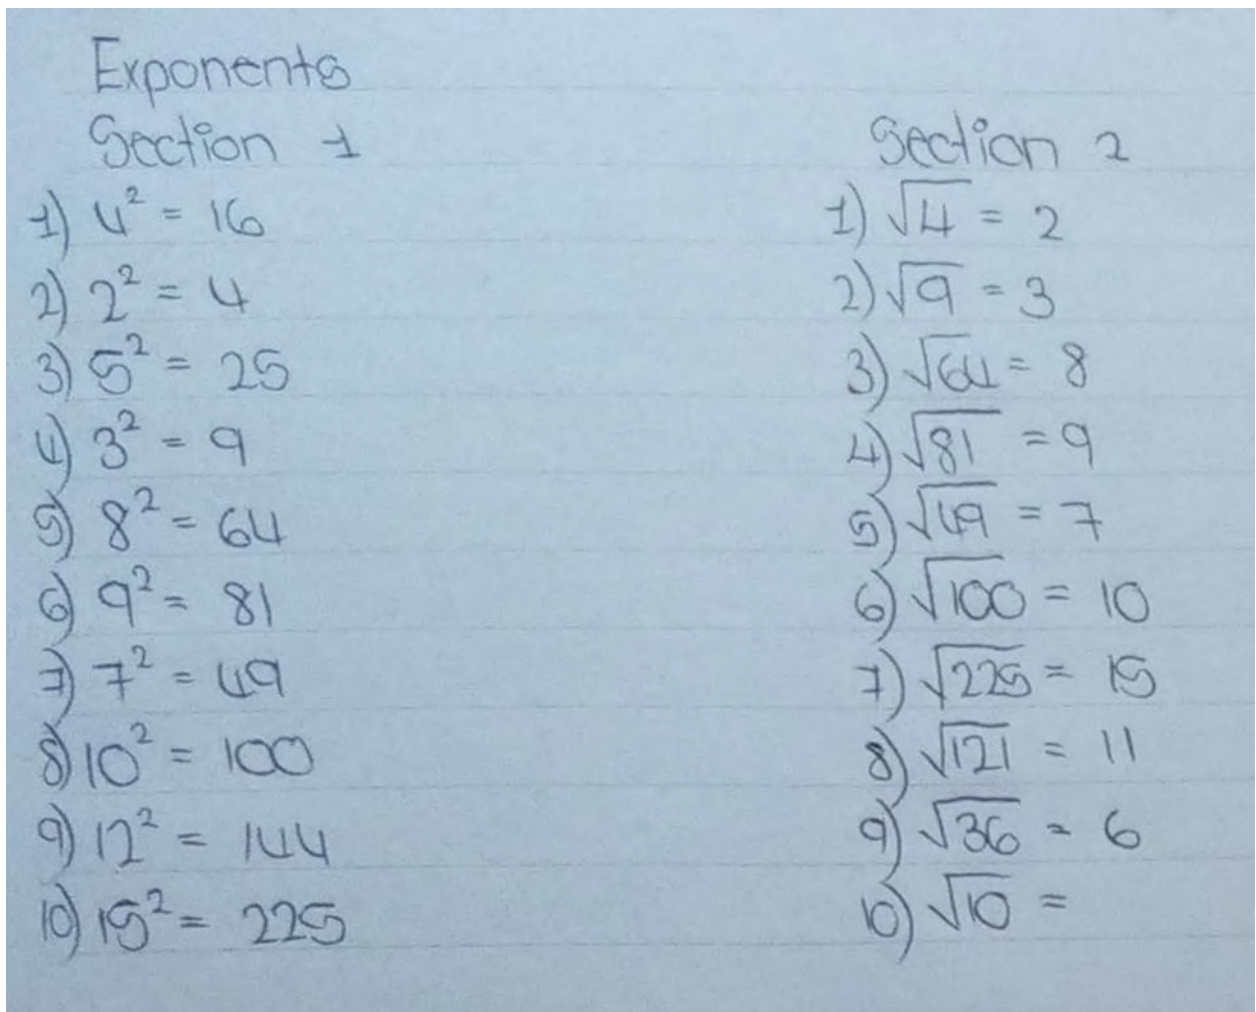 Exponents
Section 1
1) 4² = 16
2) 2² = 4
3) 5² = 25
4) 3² = 9
5) 8² = 64
6) 9² = 81
7) 7² = 49
8) 10² = 100
9) 12² = 144
10) 15² = 225
Section 2
1) √4 = 2
2) √9 = 3
3) √64 = 8
4) √81 = 9
5) √49 = 7
6) √100 = 10
7) √225 = 15
8) √121 = 11
9) √36 = 6
10) √10 =